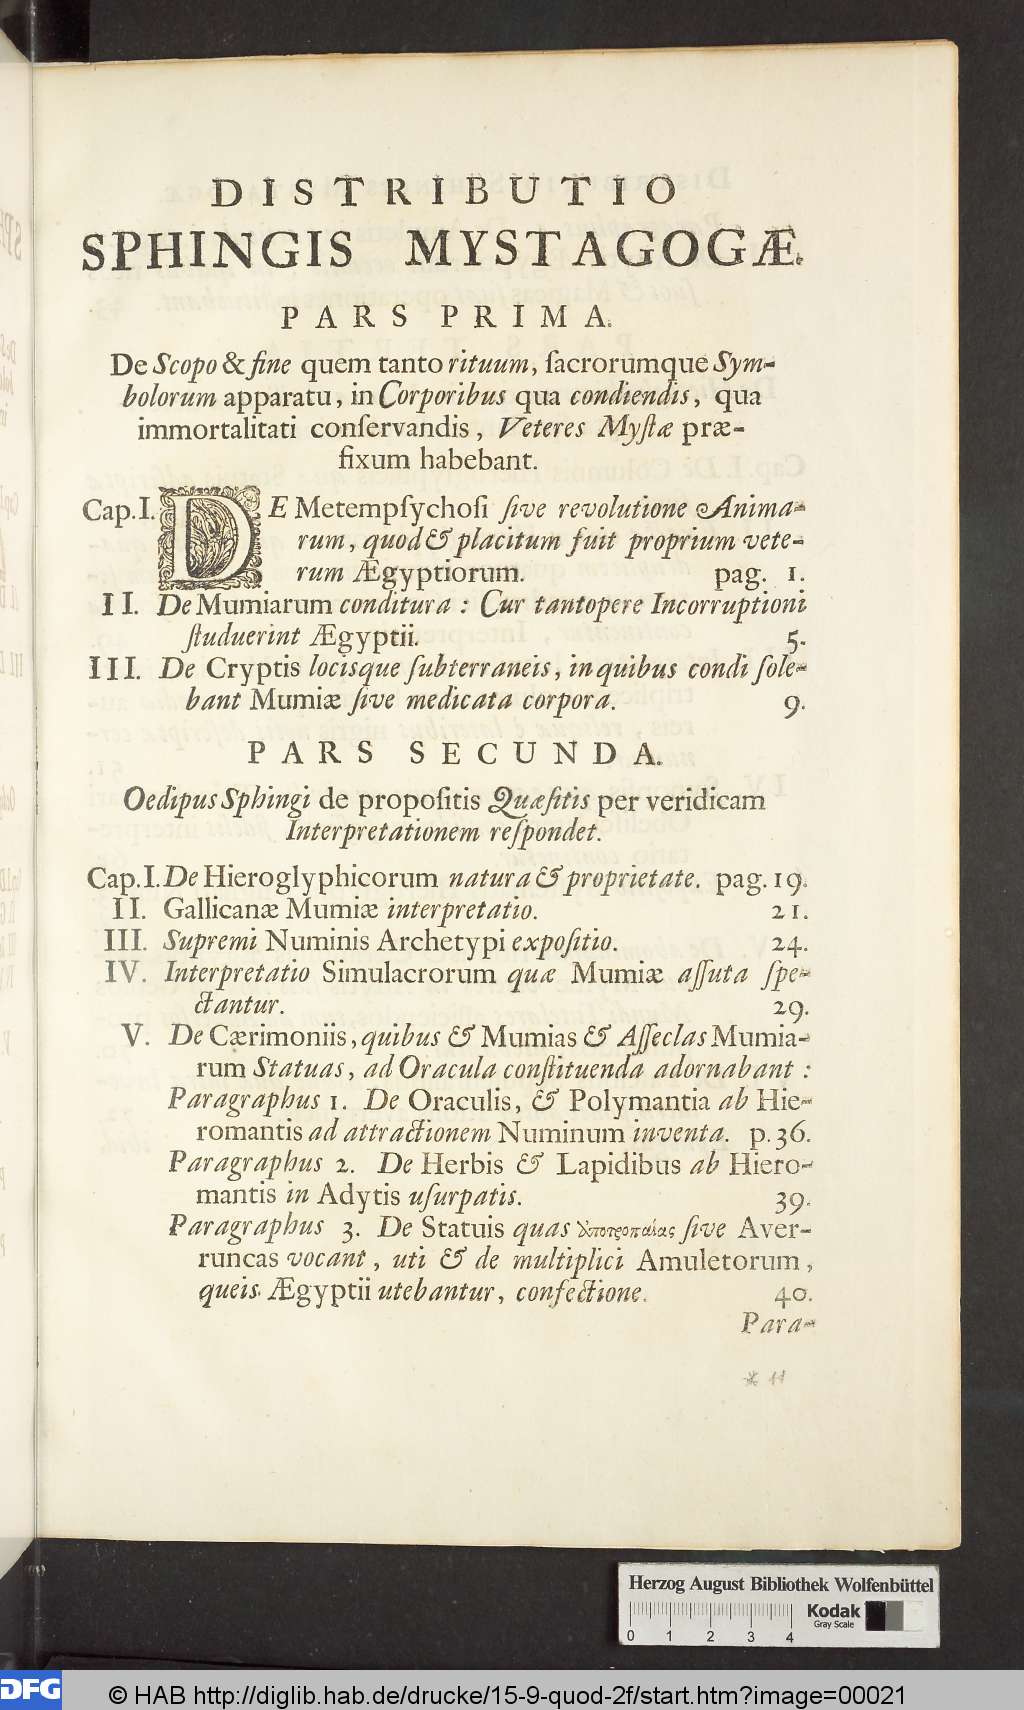 DISTRIBUTIO
SPHINGIS MYSTAGOGÆ.
PARS PRIMA.
De Scopo & fine quem tanto rituum, ſacrorumque Sym-
bolorum apparatu, in Corporibus qua condiendis, qua
immortalitati conſervandis, Veteres Myſtæ præ-
fixum habebant.
Cap. I. DE Metempſychoſi ſive revolutione Anima-
rum, quod & placitum fuit proprium vete-
rum Ægyptiorum. pag. 1.
II. De Mumiarum conditura : Cur tantopere Incorruptioni
ſtuduerint Ægyptii. 5.
III. De Cryptis locisque ſubterraneis, in quibus condi ſole-
bant Mumiæ ſive medicata corpora. 9.
PARS SECUNDA.
Oedipus Sphingi de propoſitis Quæſitis per veridicam
Interpretationem reſpondet.
Cap. I. De Hieroglyphicorum natura & proprietate. pag. 19.
II. Gallicanæ Mumiæ interpretatio. 21.
III. Supremi Numinis Archetypi expoſitio. 24.
IV. Interpretatio Simulacrorum quæ Mumiæ aſſuta ſpe-
ctantur. 29.
V. De Cærimoniis, quibus & Mumias & Aſſeclas Mumia-
rum Statuas, ad Oracula conſtituenda adornabant :
Paragraphus 1. De Oraculis, & Polymantia ab Hie-
romantis ad attractionem Numinum inventa. p. 36.
Paragraphus 2. De Herbis & Lapidibus ab Hiero-
mantis in Adytis uſurpatis. 39.
Paragraphus 3. De Statuis quas ἀποτροπαίας ſive Aver-
runcas vocant, uti & de multiplici Amuletorum,
queis Ægyptii utebantur, confectione. 40.
Para-
Herzog August Bibliothek Wolfenbüttel
Kodak
Gray Scale
0 1 2 3 4
DFG
© HAB http://diglib.hab.de/drucke/15-9-quod-2f/start.htm?image=00021